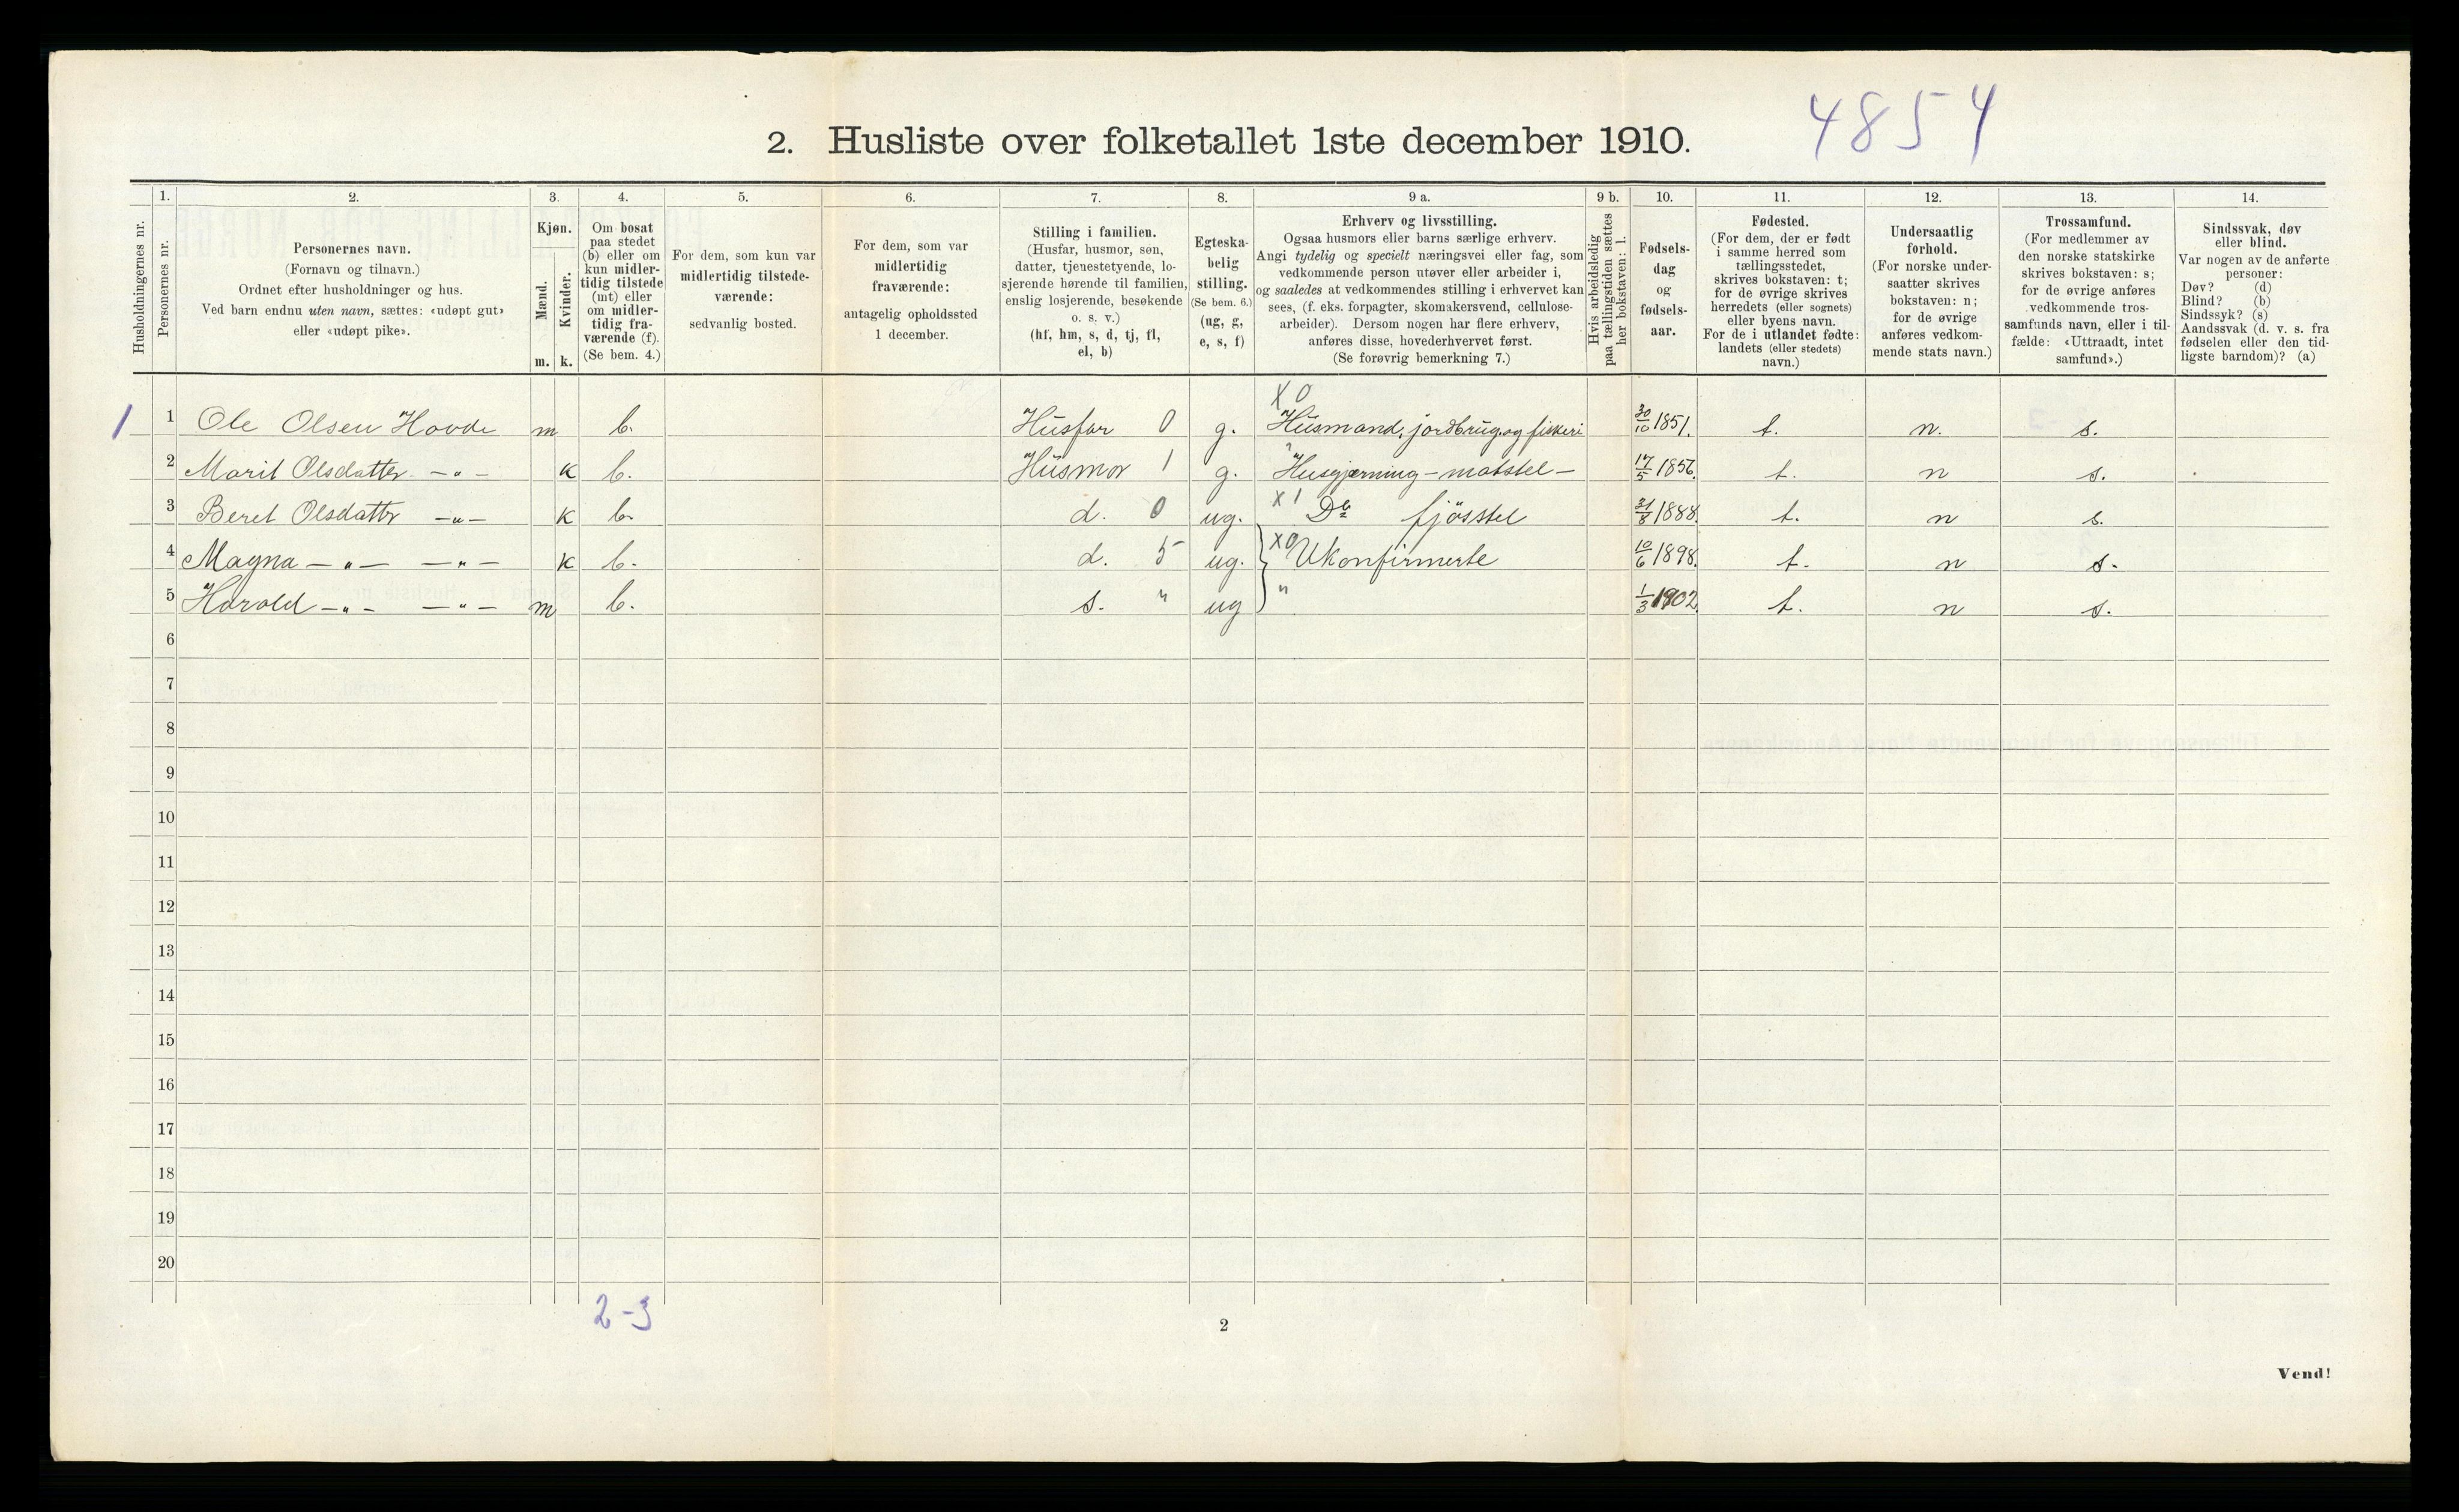 4854
2. Husliste over folketallet 1ste december 1910.
Husholdningernes nr.
1.
Personernes nr.
2.
Personernes navn.
(Fornavn og tilnavn.)
Ordnet efter husholdninger og hus.
Ved barn endnu uten navn, sættes: «udøpt gut»
eller «udøpt pike».
3.
Kjøn.
Mænd.
Kvinder.
m. k.
4.
Om bosat
paa stedet
(b) eller om
kun midler-
tidig tilstede
(mt) eller
om midler-
tidig fra-
værende (f).
(Se bem. 4.)
5.
For dem, som kun var
midlertidig tilstede-
værende:
sedvanlig bosted.
6.
For dem, som var
midlertidig
fraværende:
antagelig opholdssted
1 december.
7.
Stilling i familien.
(Husfar, husmor, søn,
datter, tjenestetyende, lo-
sjerende hørende til familien,
enslig losjerende, besøkende
o. s. v.)
(hf, hm, s, d, tj, fl,
el, b)
8.
Egteska-
belig
stilling.
(Se bem. 6.)
(ug, g,
e, s, f)
9 a.
Erhverv og livsstilling.
Ogsaa husmors eller barns særlige erhverv.
Angi tydelig og specielt næringsvei eller fag, som
vedkommende person utøver eller arbeider i,
og saaledes at vedkommendes stilling i erhvervet kan
sees, (f. eks. forpagter, skomakersvend, cellulose-
arbeider). Dersom nogen har flere erhverv,
anføres disse, hovederhvervet først.
(Se forøvrig bemerkning 7.)
9 b.
Hvis arbeidsledig
paa tællingstiden sættes
her bokstaven: l.
10.
Fødsels-
dag
og
fødsels-
aar.
11.
Fødested.
(For dem, der er født
i samme herred som
tællingsstedet,
skrives bokstaven: t;
for de øvrige skrives
herredets (eller sognets)
eller byens navn.
For de i utlandet fødte:
landets (eller stedets)
navn.)
12.
Undersaatlig
forhold.
(For norske under-
saatter skrives
bokstaven: n;
for de øvrige
anføres vedkom-
mende stats navn.)
13.
Trossamfund.
(For medlemmer av
den norske statskirke
skrives bokstaven: s;
for de øvrige anføres
vedkommende tros-
samfunds navn, eller i til-
fælde: «Uttraadt, intet
samfund».)
14.
Sindssvak, døv
eller blind.
Var nogen av de anførte
personer:
Døv? (d)
Blind? (b)
Sindssyk? (s)
Aandssvak (d. v. s. fra
fødselen eller den tid-
ligste barndom)? (a)
X 0
1 1 Ole Olsen Hovde m b. Husfar 0 g. Husmand, jordbrug og fiskeri 30/10 1851. t. n. s.
2 Marit Olsdatter -"- k b. Husmor 1 g. Husgjerning - matstel - 17/5 1856. t. n s.
3 Beret Olsdattr -"- k b. d. 0 ug. X 1 Do fjösstel 31/8 1888. t. n s.
4 Magna -"- -"- k b. d. 5 ug. X0 Ukonfirmerte 10/6 1898. t. n s.
5 Harald -"- -"- m b. s. " ug " 1/3 1902. t. n s.
6
7
8
9
10
11
12
13
14
15
16
17
18
19
20
2-3
2
Vend!